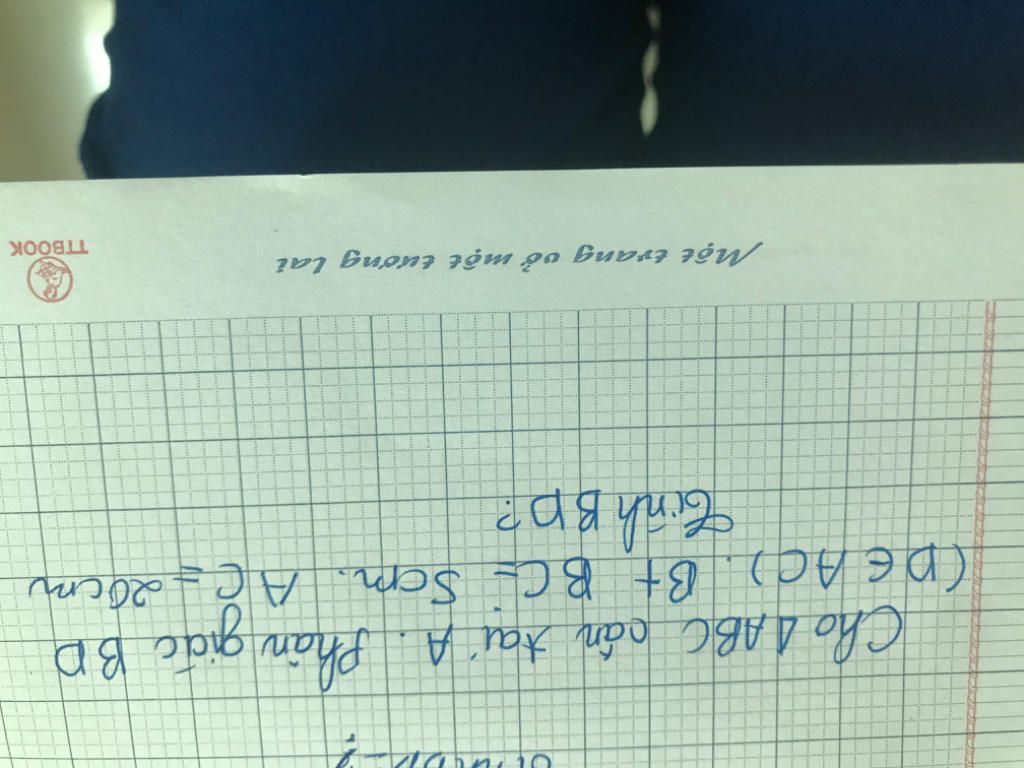 Cho ΔABC cân tại A. Phân giác BD
(D ∈ AC). Bt BC = 5cm. AC = 20cm
Tính BD?
Một trang vở một tương lai
TTBOOK